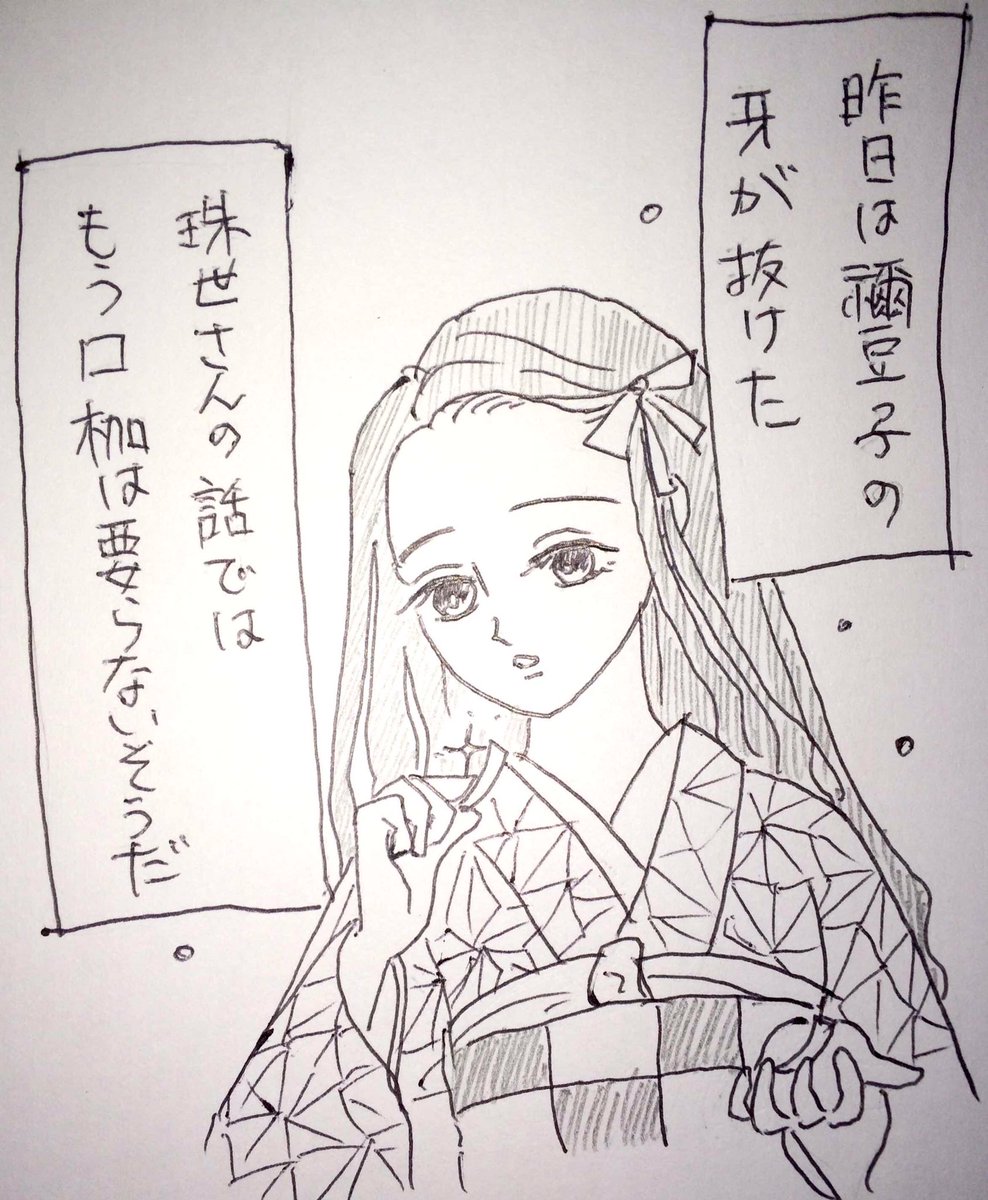 昨日は禰豆子の
牙が抜けた
珠世さんの話では
もう口枷は要らないそうだ